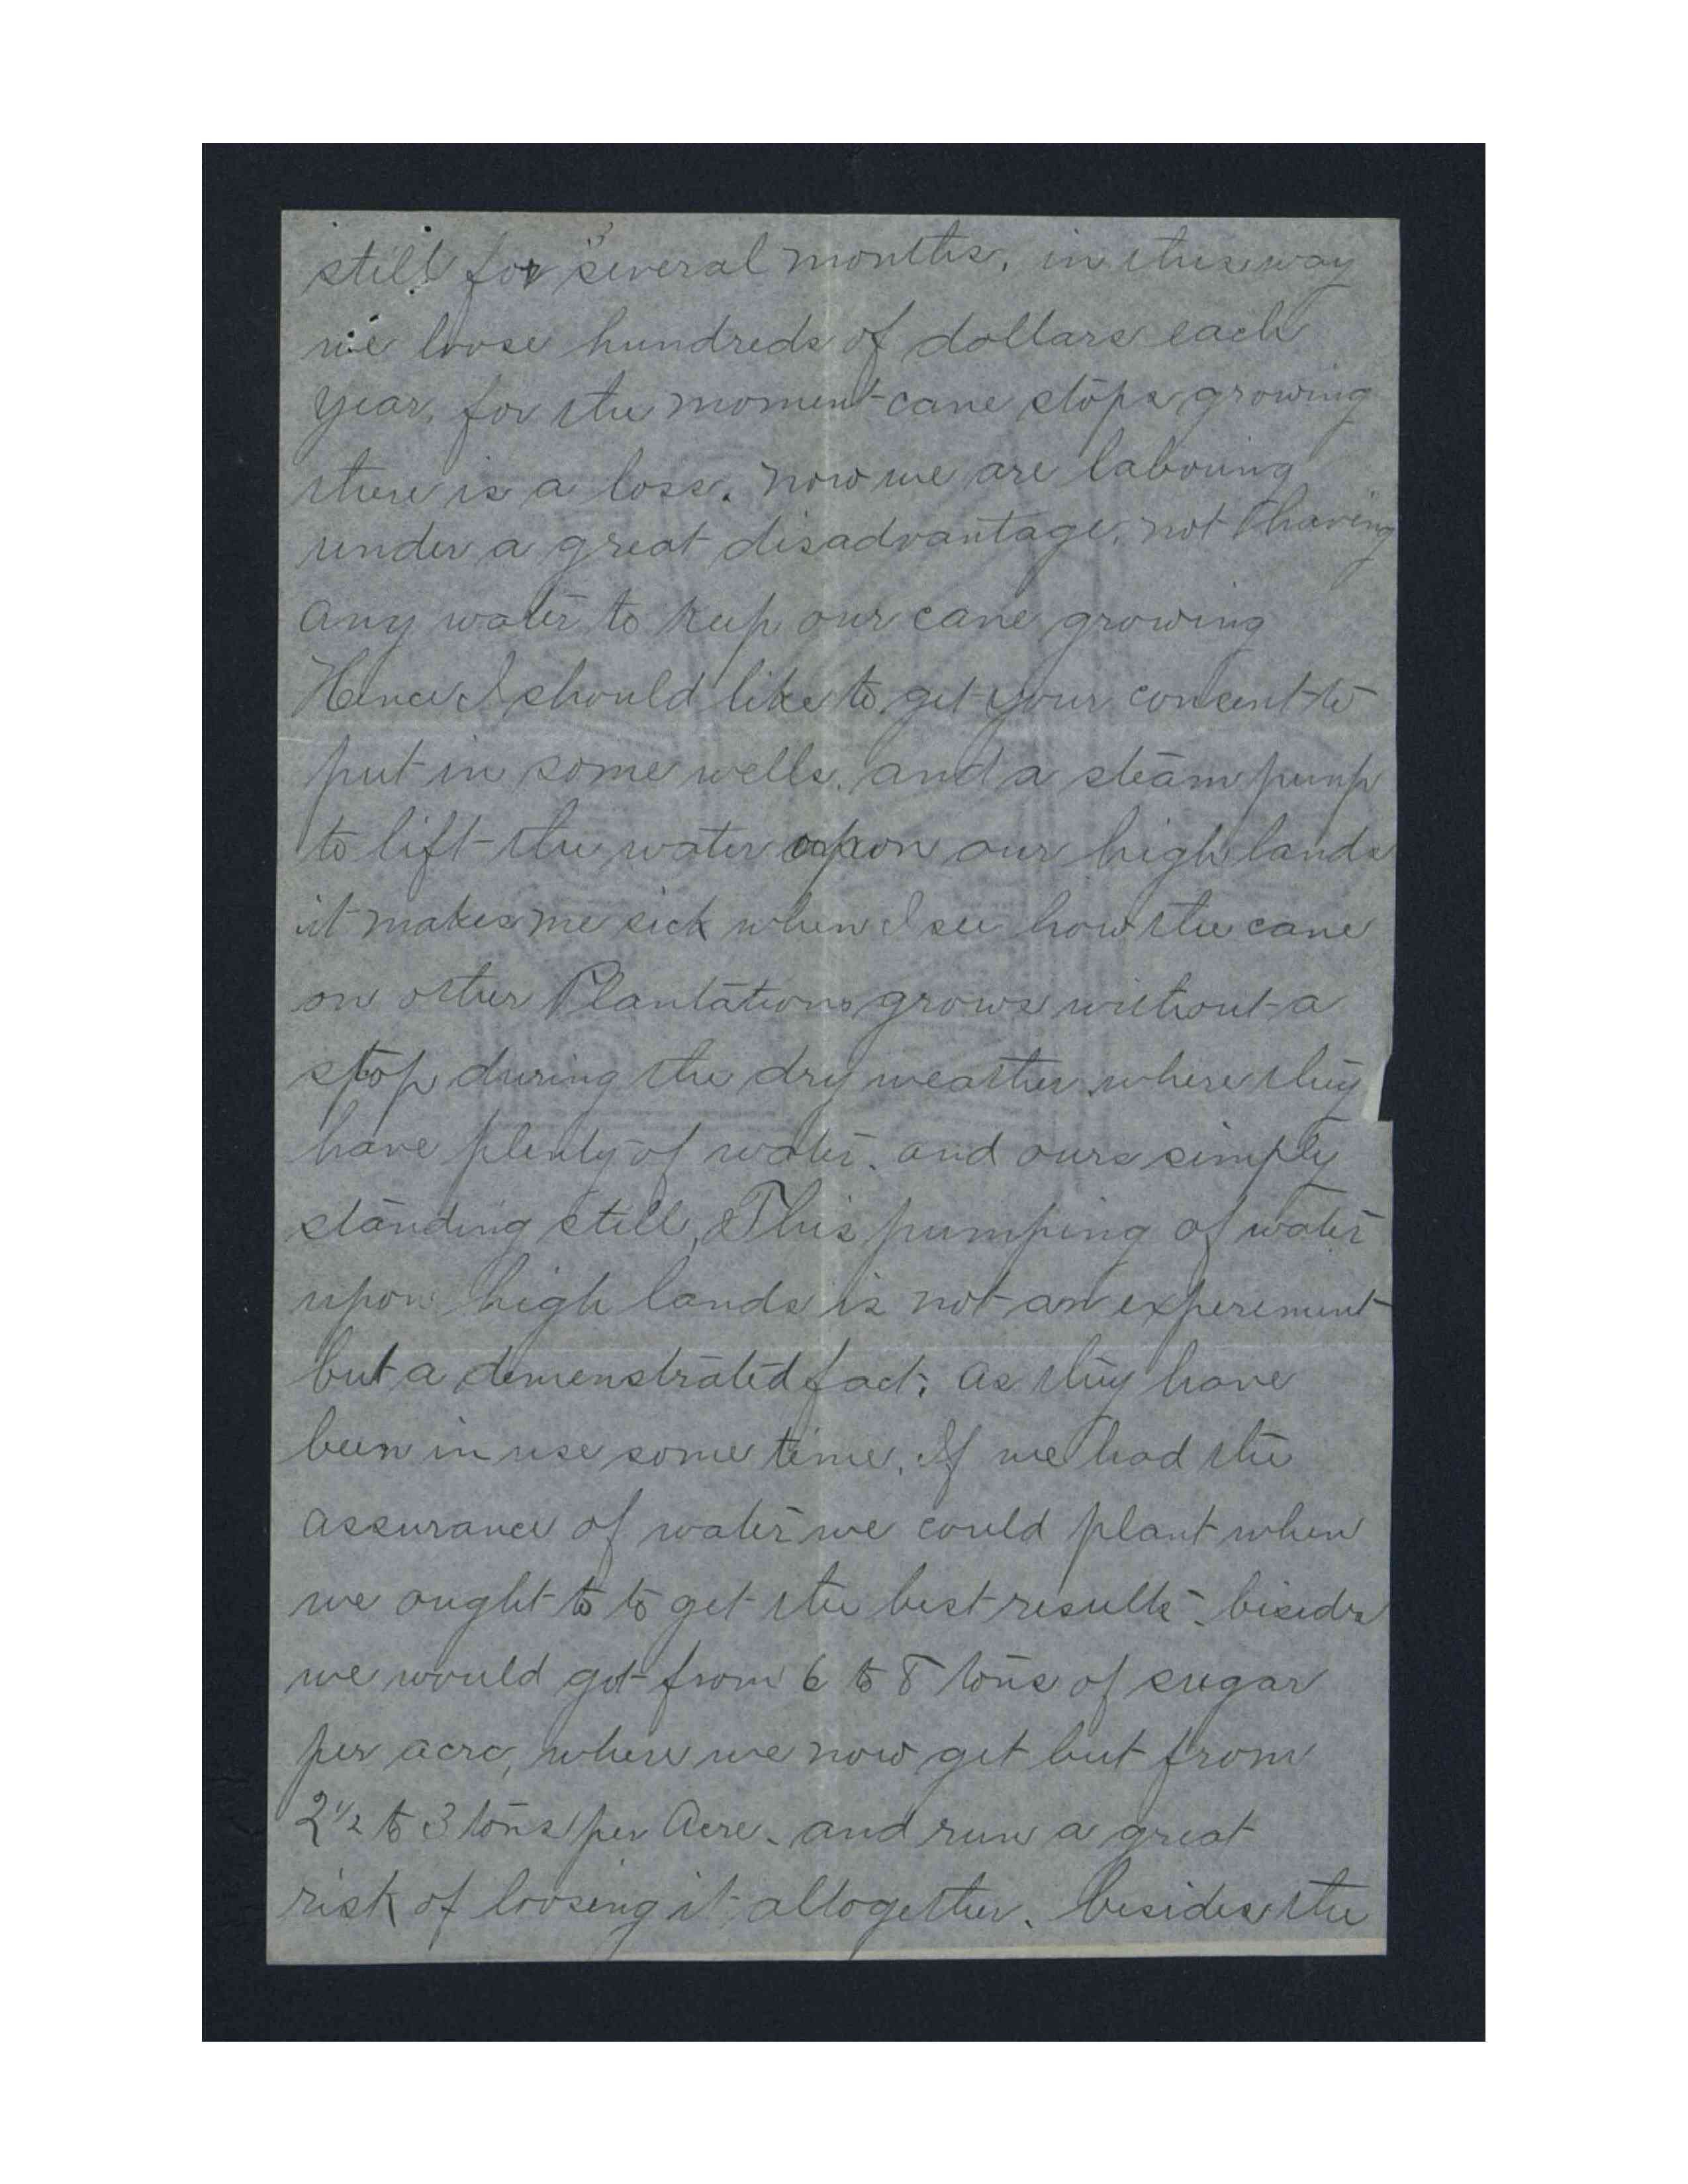 3
still for several months, in this way
we loose hundreds of dollars each
year, for the moment cane stops growing
there is a loss. now we are labouing
under a great disadvantage, not having
any water to keep our cane growing
Hence I should like to get your consent to
put in some wells, and a steam pump
to lift the water upon our high lands
it makes me sick when I see how the cane
on other Plantations grows without a
stop during the dry weather where they
have plenty of water. and ours simply
standing still, This pumping of water
upon high lands is not an experement
but a demenstrated fact; as they have
been in use some time. If we had the
assurance of water we could plant when
we ought to to get the best results. biseds
we would got from 6 to 8 tons of sugar
per acre, where we now get but from
2 1/2 to 3 tons per Acre. and run a great
risk of loosing it altogether. besides the